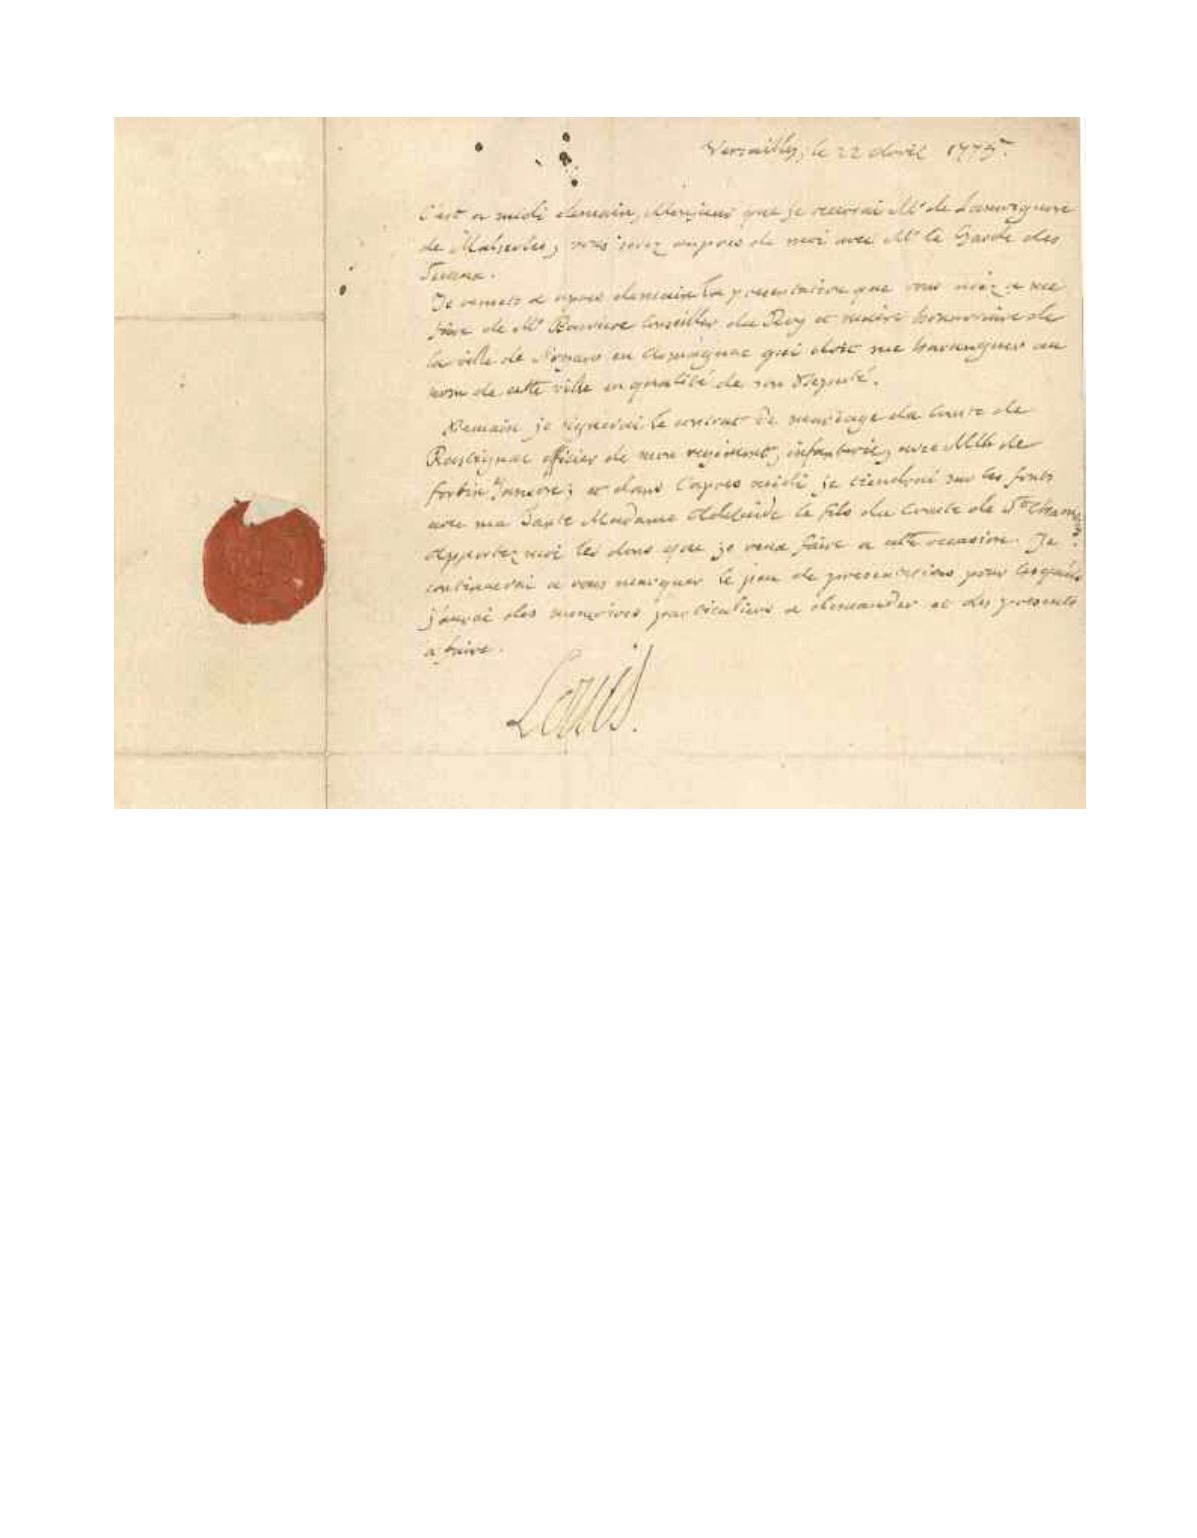 Versailles, le 22 Avril 1775.
C'est a midi demain, Monsieur que je recevrai Mr de Lamoignon
de Malserbes, vous serez aupres de moi avec Mr le Garde des
Sceaux.
Je remets a apres demain la presentation que vous aviez a me
faire de Mr Conseiller du Roy et maire honnoraire de
la ville de Nogaro en Armagnac qui doit me haranguer au
nom de cette ville en qualité de son Deputé.
Demain je signerai le contrat de mariage du Comte de
Rastignac officier de mon regiment, infanterie, avec Mlle de
forbin Janson; et dans l'apres midi je tiendrai sur les fonts
avec ma Tante Madame Adelaide le fils du Comte de St
Apportez moi les dons que je veux faire a cette occasion. Je
continuerai a vous marquer le jour de presentations pour lesquels
j'aurai des memoires particuliers a demander et des presents
a faire.
Louis.